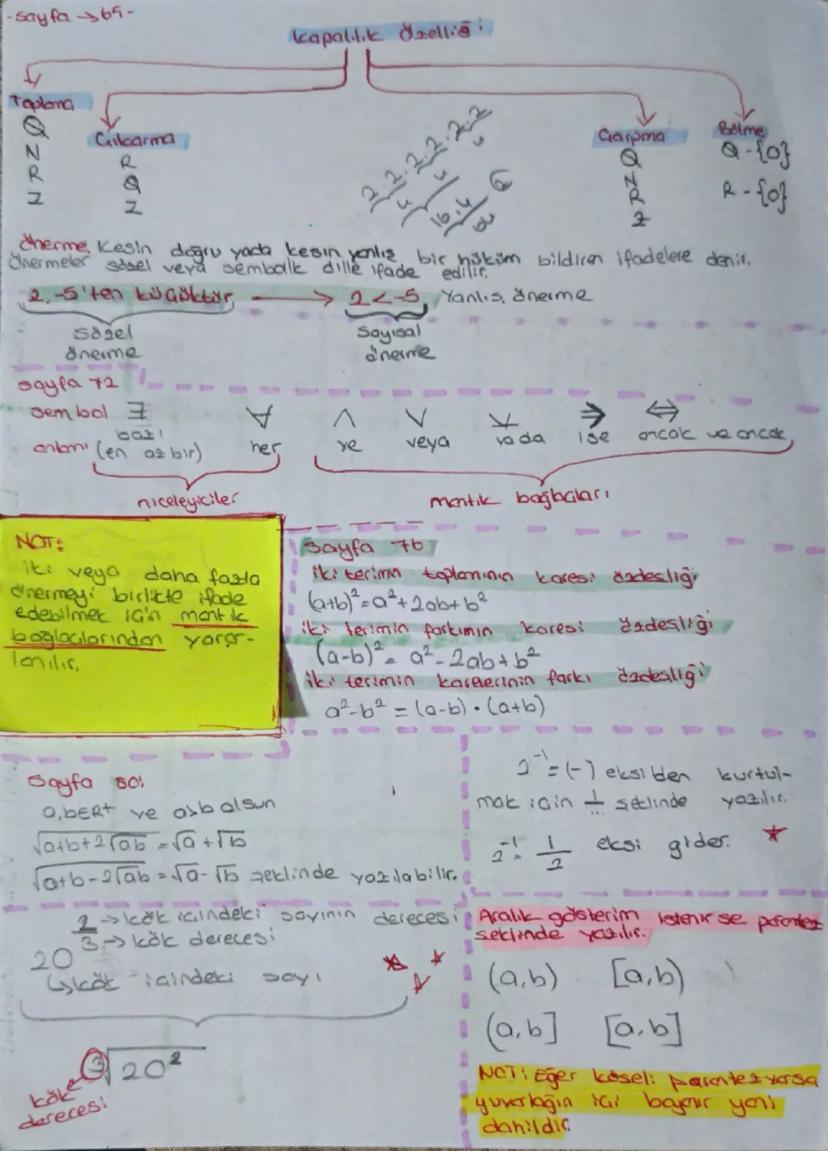 -sayfa → 69-
Kapalılık özelliği
Toplama
Q
N
R
Z
Çıkarma
R
Q
Z
2.2.2.2.2.2
4
16.4
Çarpma
Q
N
R
Z
Bölme
Q-{0}
R-{0}
önerme, Kesin doğru yada kesin yanlış bir hüküm bildiren ifadelere denir.
önermeler sözel veya sembolk dille ifade edilir.
2, -5'ten küçüktür, → 2<-5, Yanlış, önerme
sözel
önerme
Sayısal
önerme
sayfa 72
sembol ∃ ∀ ∧ ∨ ⊻ ⇒ ⇔
anlamı bazı (en az bir) her ve veya yada ise ancak ve ancak
niceleyiciler
mantık bağlaçları
NOT:
iki veya daha fazla
önermeyi birlikte ifade
edebilmek için mantık
bağlaçlarından yarar-
lanılır.
Sayfa 76
iki terimin toplamının karesi özdesliği
(a+b)²=a²+2ab+b²
iki terimin farkının karesi özdesliği
(a-b)²= a²-2ab+b²
iki terimin karelerinin farkı özdesliği
a²-b² = (a-b)·(a+b)
Sayfa 80:
a,b∈R+ ve a>b olsun
√a+b+2√ab = √a+√b
√a+b-2√ab = √a-√b şeklinde yazılabilir.
2⁻¹=(-) eksi'den kurtul-
mak için 1/... şeklinde yazılır.
2⁻¹= 1/2 eksi gider. ★
2 → kök içindeki sayının derecesi
3 → kök derecesi
20
↳ kök içindeki sayı
³√20²
kök
derecesi
Aralık gösterim istenirse parantez
şeklinde yazılır.
(a,b) [a,b)
(a,b] [a,b]
NOT: Eğer köşeli parantez varsa
yuvarlağın içi boyanır yani
dahildir.